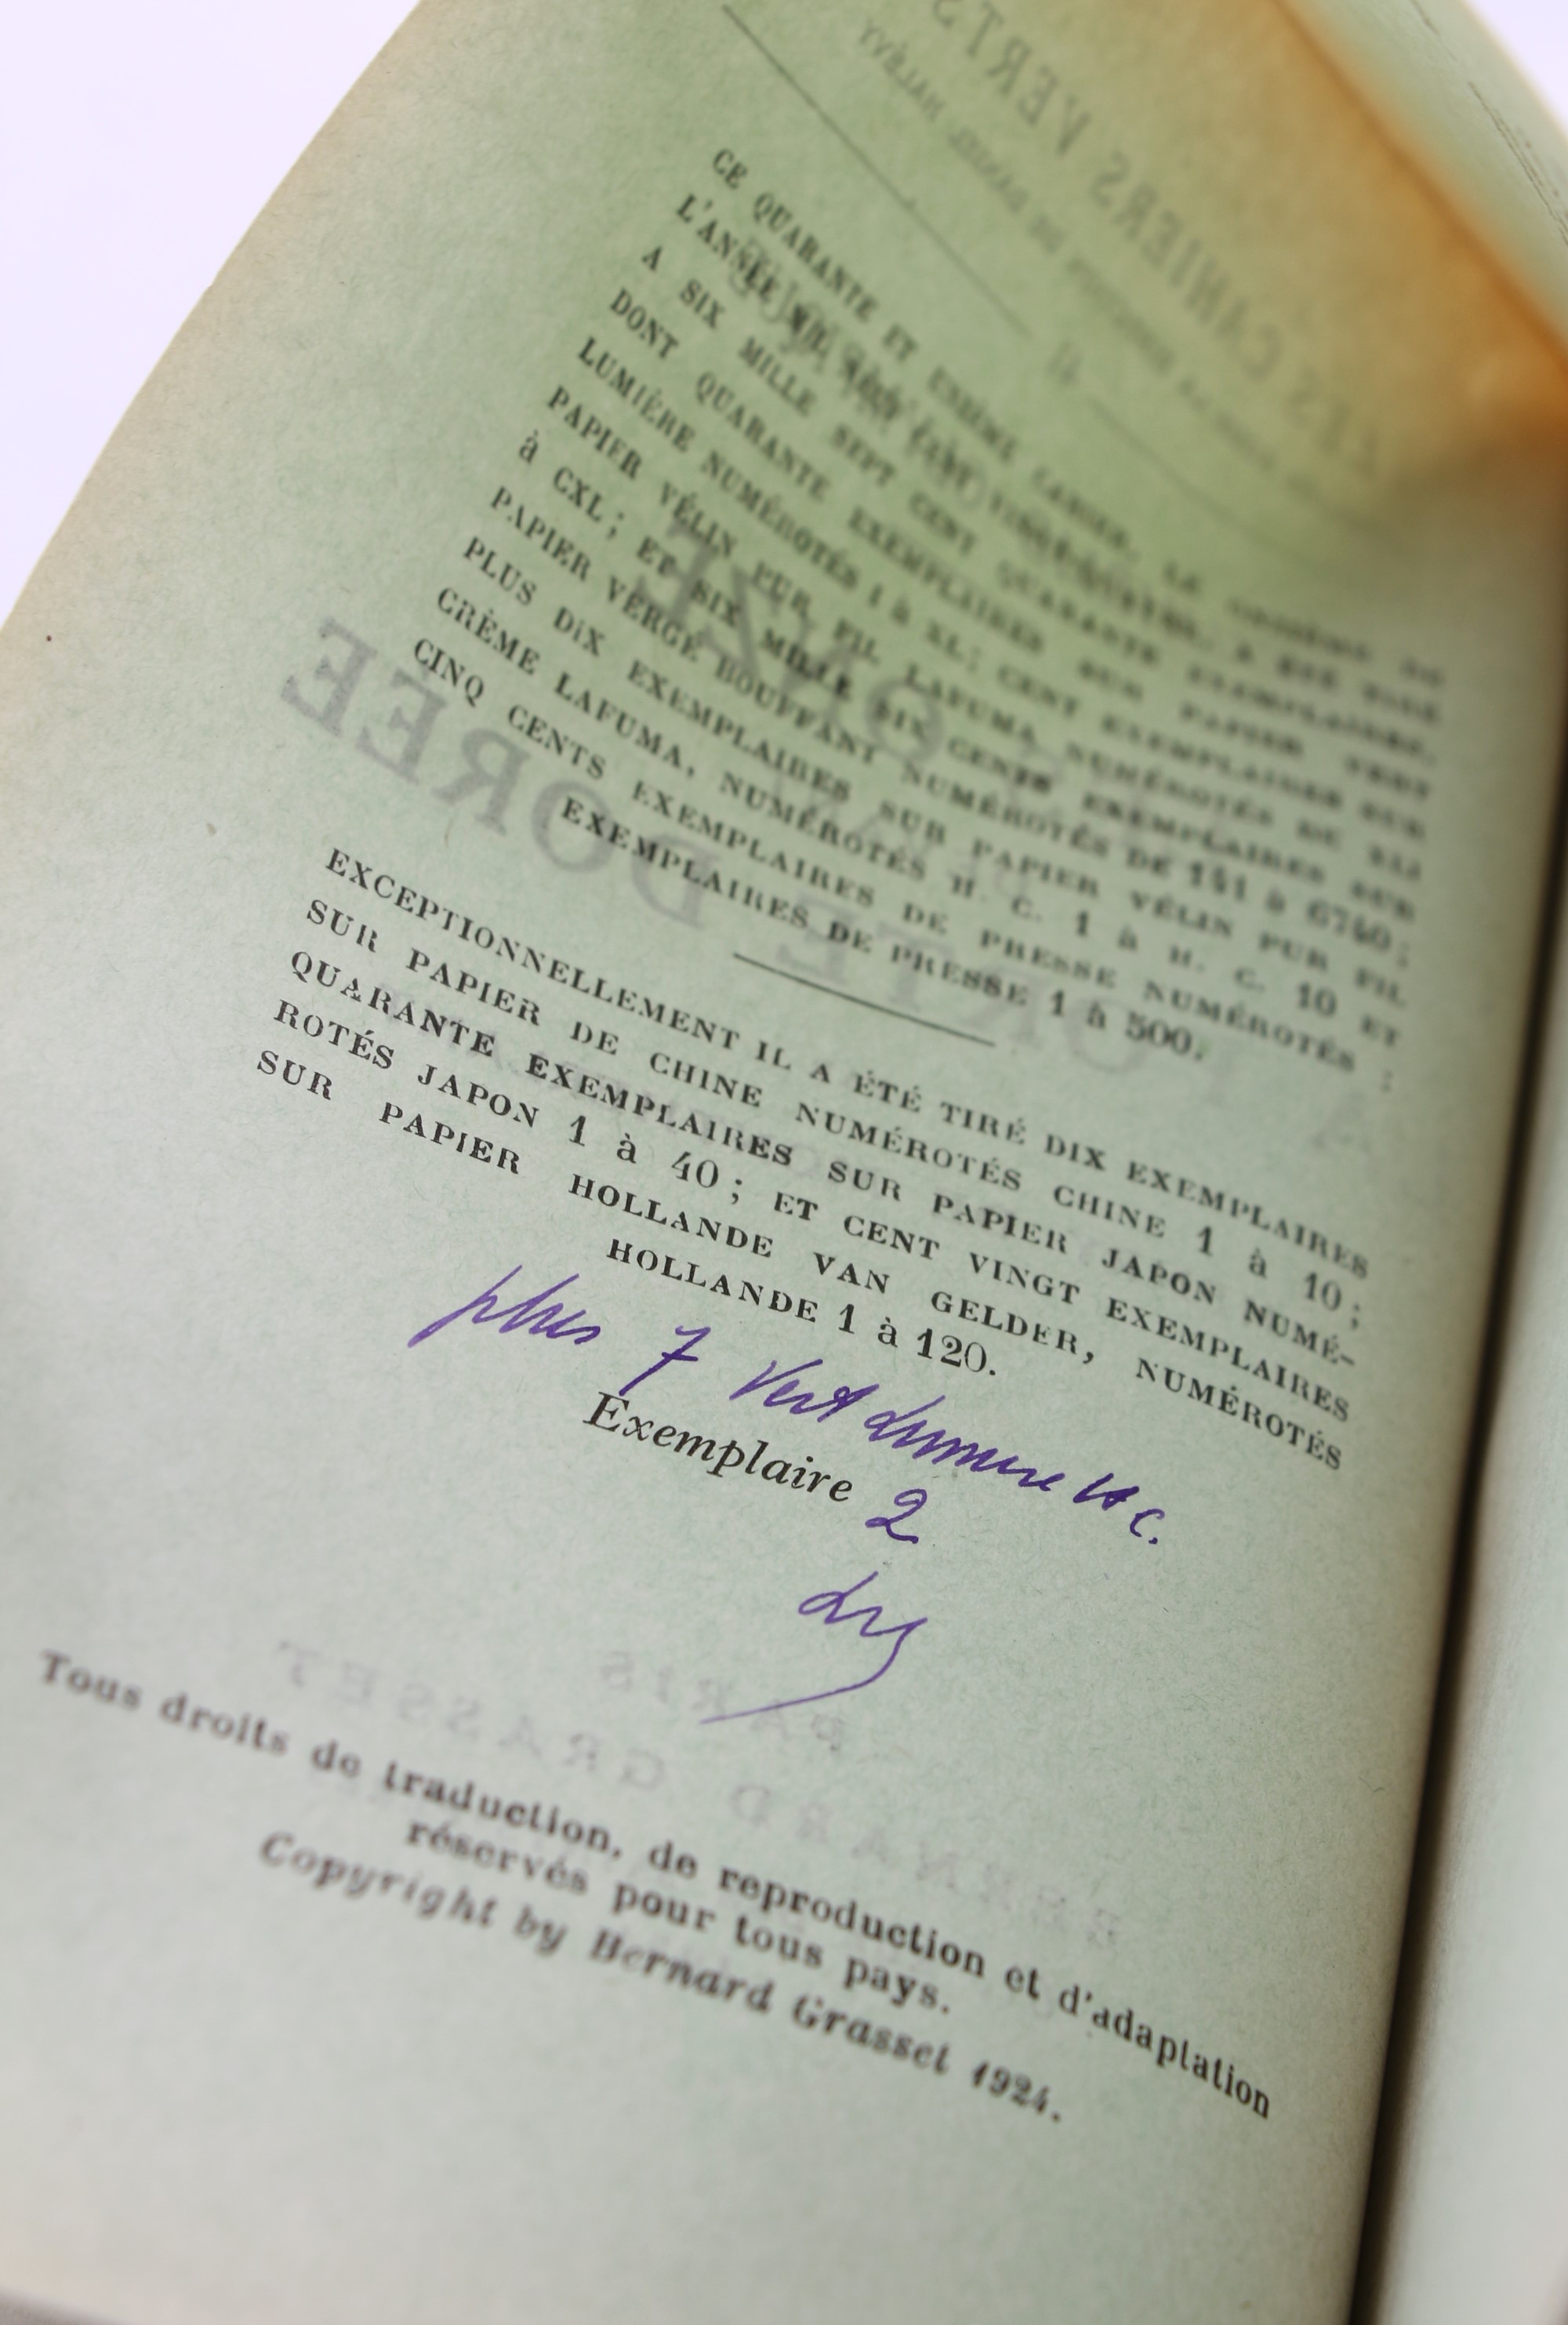 CE QUARANTE ET UNIÈME CAHIER, LE ONZIÈME DE
L'ANNÉE MIL NEUF CENT VINGT-QUATRE, A ÉTÉ TIRÉ
A SIX MILLE SEPT CENT QUARANTE EXEMPLAIRES,
DONT QUARANTE EXEMPLAIRES SUR PAPIER VERT
LUMIÈRE NUMÉROTÉS I à XL; CENT EXEMPLAIRES SUR
PAPIER VÉLIN PUR FIL LAFUMA NUMÉROTÉS DE XLI
à CXL; ET SIX MILLE SIX CENTS EXEMPLAIRES SUR
PAPIER VERGÉ BOUFFANT NUMÉROTÉS DE 141 à 6740;
PLUS DIX EXEMPLAIRES SUR PAPIER VÉLIN PUR FIL
CRÈME LAFUMA, NUMÉROTÉS H. C. 1 à H. C. 10 ET
CINQ CENTS EXEMPLAIRES DE PRESSE NUMÉROTÉS :
EXEMPLAIRES DE PRESSE 1 à 500.
EXCEPTIONNELLEMENT IL A ÉTÉ TIRÉ DIX EXEMPLAIRES
SUR PAPIER DE CHINE NUMÉROTÉS CHINE 1 à 10;
QUARANTE EXEMPLAIRES SUR PAPIER JAPON NUMÉ-
ROTÉS JAPON 1 à 40; ET CENT VINGT EXEMPLAIRES
SUR PAPIER HOLLANDE VAN GELDER, NUMÉROTÉS
HOLLANDE 1 à 120.
plus 7 Vert Lumière H C.
Exemplaire 2
Tous droits de traduction, de reproduction et d'adaptation
réservés pour tous pays.
Copyright by Bernard Grasset 1924.